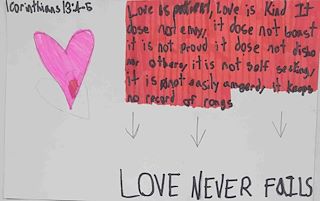 1corinthians 13:4-5
Love is patient, Love is kind It
dose not envy, it dose not boast
it is not proud it dose not disho
nor others, it is not self seeking,
it is not easily angerd, it keeps
no record of rongs
LOVE NEVER FAILS